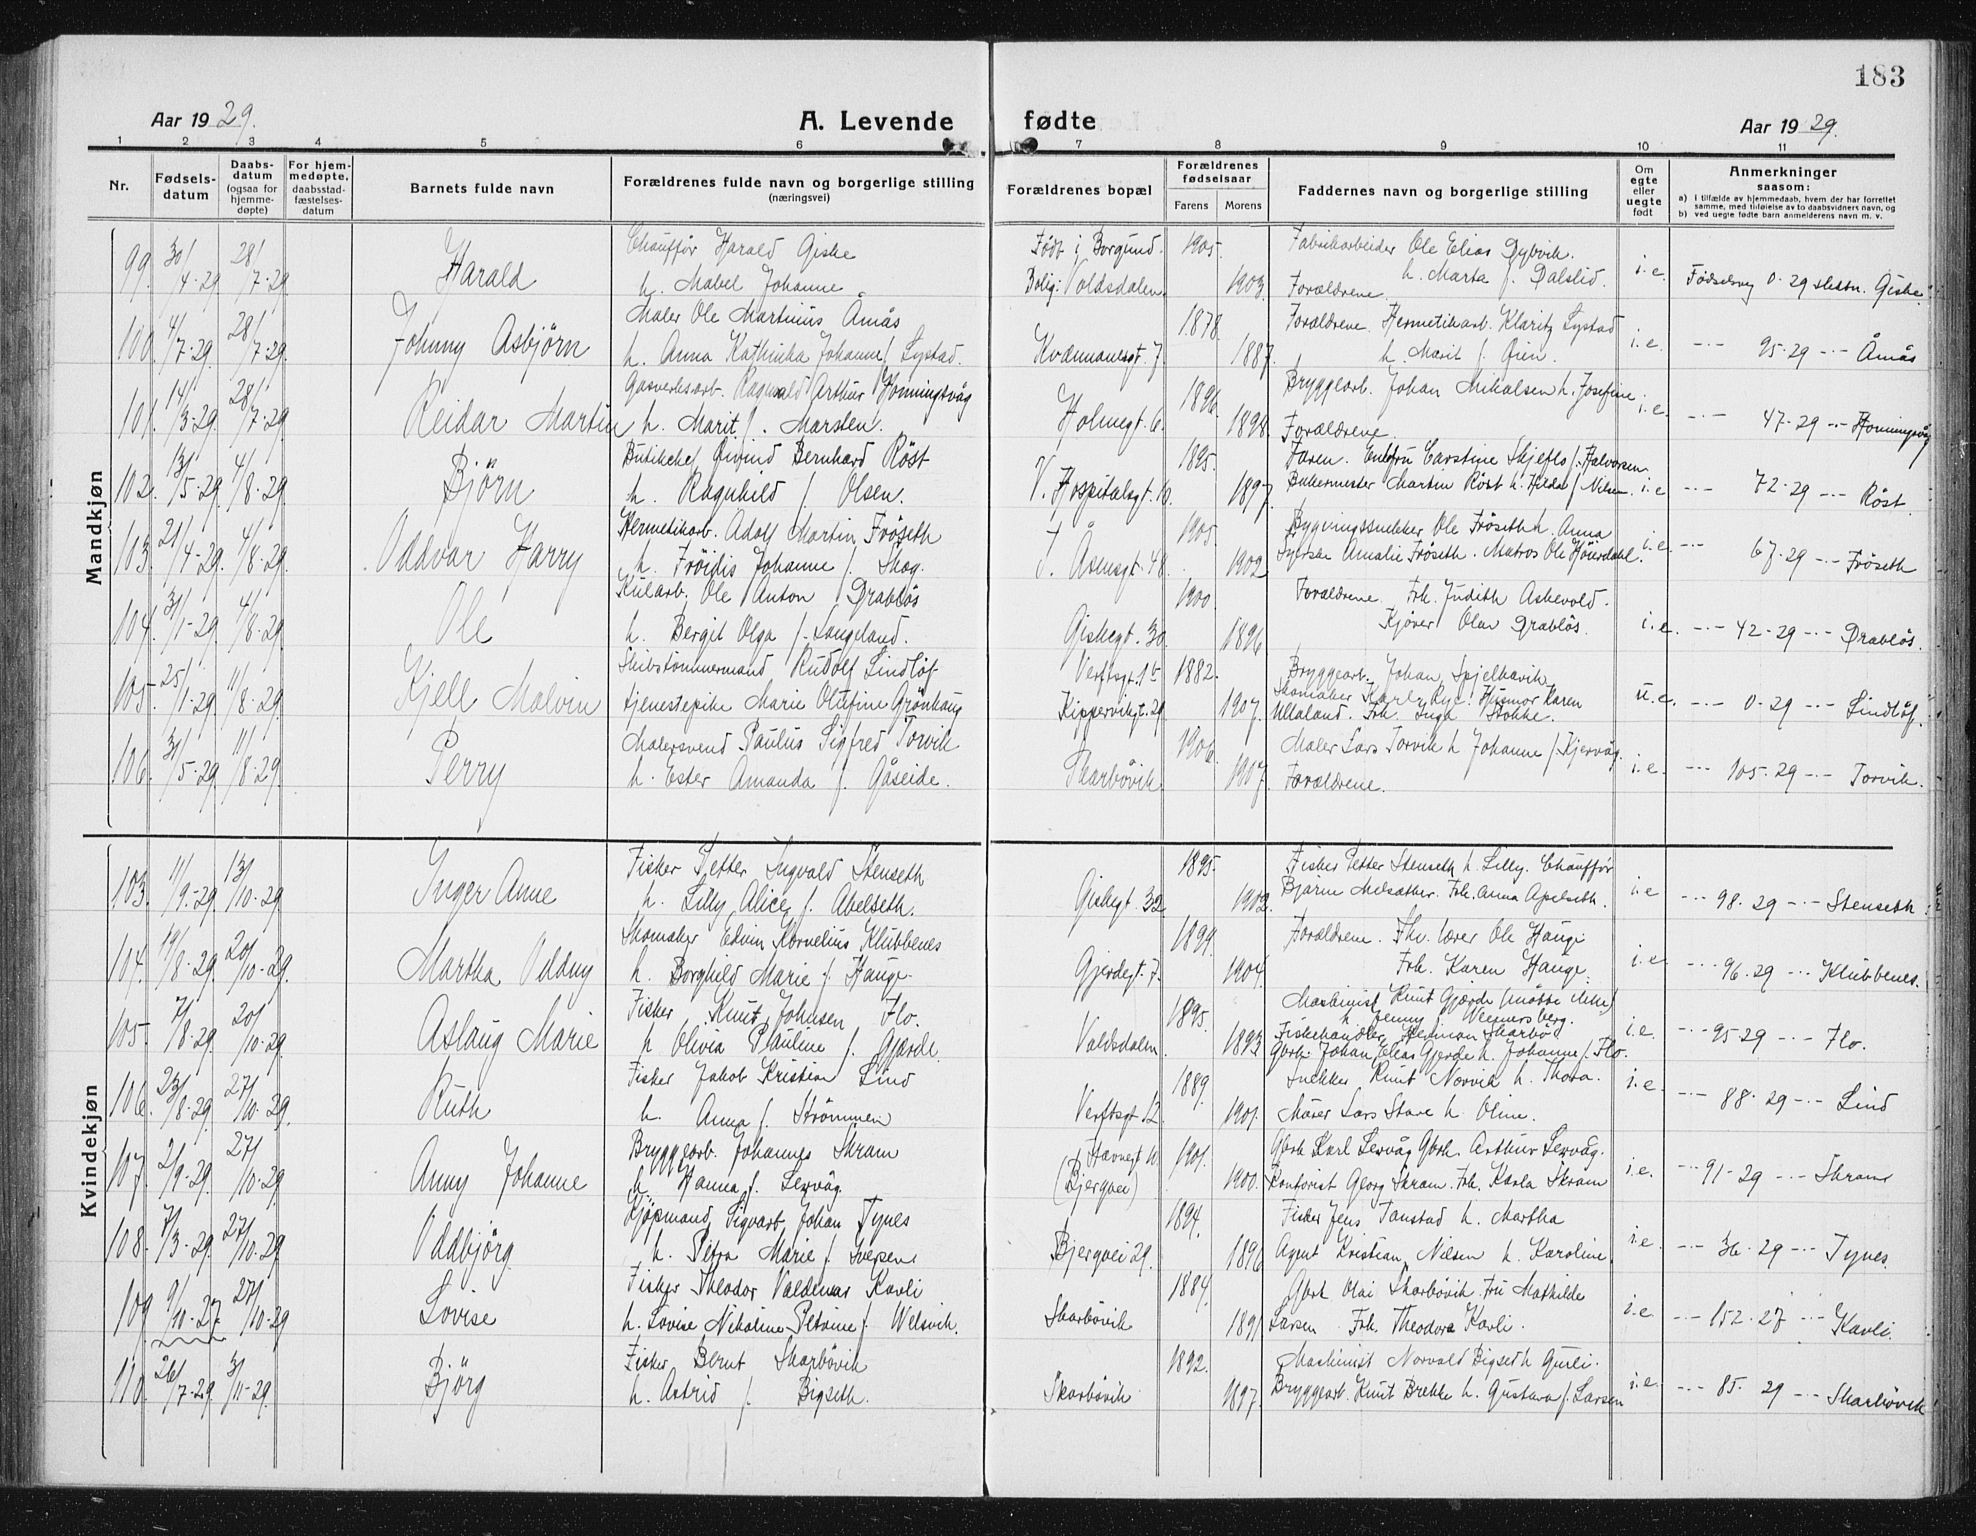 183
Aar 1929.
A. Levende fødte
Aar 1929.
1 2 3 4 5 6 7 8 9 10 11
Nr.
Fødselsdatum
Daabsdatum (ogsaa for hjemmedøpte)
For hjemmedøpte, daabsstadfæstelsesdatum
Barnets fulde navn
Forældrenes fulde navn og borgerlige stilling (næringsvei)
Forældrenes bopæl
Forældrenes fødselsaar
Farens Morens
Faddernes navn og borgerlige stilling
Om egte eller uegte født
Anmerkninger saasom:
a) I tilfælde av hjemmedaab, hvem der har forrettet samme, med tilføielse av to daabsvidners navn, og
b) ved uegte fødte barn anmelderens navn m. v.
Mandkjøn
99. 30/4-29 28/7-29 Harald
Chauffør Harald Giske
h. Mabel Johanne
Født i Borgund.
Bolig: Voldsdalen
1905. 1903.
Fabrikarbeider Ole Elias Dybvik.
h. Marta f. Dalslid.
Forældrene.
i.e. Fødselsreg 0-29 Giske
100. 4/7-29. 28/7-29. Johnny Asbjörn
Maler Ole Martinius Åmås
h. Anna Kathinka Johanne f. Systad.
1878. 1887.
Forældrene. Hermetikarb. Klaritz Systad
h. Marit f. Øien.
i.e. -"- 95-29 -"- Åmås
101. 14/3-29. 28/7-29. Reidar Martin
Gasverksarb. Ragnvald Arthur Honningsvåg
h. Marit f. Marsten.
Holmegt. 6.
1896. 1898.
Bryggearb. Johan Mikalsen h. Josefine
Forældrene
i.e. -"- 47-29 -"- Honningsvåg
102. 13/5-29. 4/8-29. Björn
Øivind Bernhard Röst
h. Ragnhild f. Olsen.
V. Hospitalsgt. 10.
1895. 1897.
Faren. Carstine Skjeflo f. Halvorsen
Bakermester Martin Röst h. Hilda f. Nilsen.
i.e. -"- 72-29 -"- Röst.
103. 21/4-29. 4/8-29. Oddvar Harry
Hermetikarb. Adolf Martin Fröseth
h. Fröidis Johanne f. Skog.
Åsensgt. 48.
1905. 1902
Bygningssnekker Ole Fröseth h. Anna
Amalie Fröseth. Matros Ole
i.e. -"- 67-29 -"- Fröseth
104. 31/1-29. 4/8-29. Ole
Kularb. Ole Anton Drablös
h. Bergit Olga f. Langeland.
Giskegt. 30.
1900. 1896
Forældrene. Frk. Judith Askevold.
Kjører Olav Drabløs.
i.e. -"- 42-29 -"- Drabløs.
105. 25/1-29. 11/8-29. Kjell Malvin
Skibstömmermand Rudolf Lindlöf
tjenestepike Marie Olufine Grönhaug
Verftsgt. 1b
Kippervikgt. 29
1882. 1907.
Bryggearb. Johan Spjelkavik
Skomaker Husmor Karen
Ullaland. Frk. Inga Stokke.
u.e. -"- 0-29 -"- Lindlöf.
106. 31/5-29. 11/8-29. Perry
Malersvend Paulus Sigfred Torvik
h. Ester Amanda f. Gåseide.
Skarbövik
1906. 1907.
Maler Lars Torvik h. Johanne f. Kjervåg
Forældrene.
i.e. -"- 105-29 -"- Torvik.
Kvindekjøn
103. 11/9-29. 13/10-29. Inger Anne
Fisker Petter Ingvald Stenseth
h. Lilly Alice f. Abelseth.
Giskegt. 32
1895. 1902.
Fisker Petter Stenseth h. Lilly. Chauffør
Bjarne Melsæther. Frk. Anna Apelseth.
i.e -"- 98-29 -"- Stenseth
104. 19/8-29. 20/10-29. Martha Oddny
Skomaker Edvin Kornelius Klubbenes
h. Borghild Marie f. Hauge.
Gjerdegt. 7.
1899. 1904.
Forældrene. Lærer Ole Hauge
Frk. Karen Hauge.
i.e. -"- 96-29 -"- Klubbenes.
105. 7/8-29. 20/10-29. Aslaug Marie
Fisker Knut Johnsen Flo.
h. Olivia Pauline f. Gjærde.
Valdsdalen
1895. 1893
Maskinist Knut Gjærde (møtte ikke)
h. Jenny f. Wennersberg.
Fiskehandler Herman Skarbø
Gbrk. Johan Elias Gjerde h. Johanne f. Flo.
i.e. -"- 95-29 -"- Flo.
106. 23/8-29. 27/10-29. Ruth
Fisker Jakob Kristian Lind
h. Anna f. Strömmen
Verftsgt. 12.
1889. 1901.
Snekker Knut Norvik h. Thora.
Murer Lars Stave h. Oline.
i.e. -"- 88-29 -"- Lind
107. 2/9-29. 27/10-29. Anny Johanne
Bryggearb. Johannes Skram
h. Hanna f. Lervåg.
Havnegt. 10
(Bjergvei)
1901. 1900.
Gbrk Karl Lervåg Gbrk. Arthur Lervåg.
Kontorist Georg Skram. Frk. Karla Skram
i.e. -"- 91-29 -"- Skram
108. 7/3-29. 27/10-29. Oddbjörg
Kjöpmand Sigvart Johan Tynes
h. Petra Marie f. Iversen
Bjergvei 29.
1894. 1896
Fisker Jens Tanstad h. Martha
Agent Kristian Nilsen h. Karoline
i.e. -"- 36-29 -"- Tynes.
109. 9/10-27. 27/10-29 Lovise
Fisker Theodor Valdemar Kavli
h. Lovise Nikoline Petrine f. Welsvik.
Skarbövik
1884. 1891
Gbrk Olai Skarbövik. Fru Mathilde
Larsen Frk. Theodora Kavli.
i.e -"- 152-27 -"- Kavli.
110. 26/7-29. 3/11-29. Björg
Fisker Bernt Skarbövik
h. Astrid f. Bigseth.
Skarbövik
1892. 1897.
Maskinist Norvald Bigseth Gurli.
Bryggearb. Knut Brekke h. Gustava f. Larsen
i.e. -"- 85-29 -"- Skarbövik